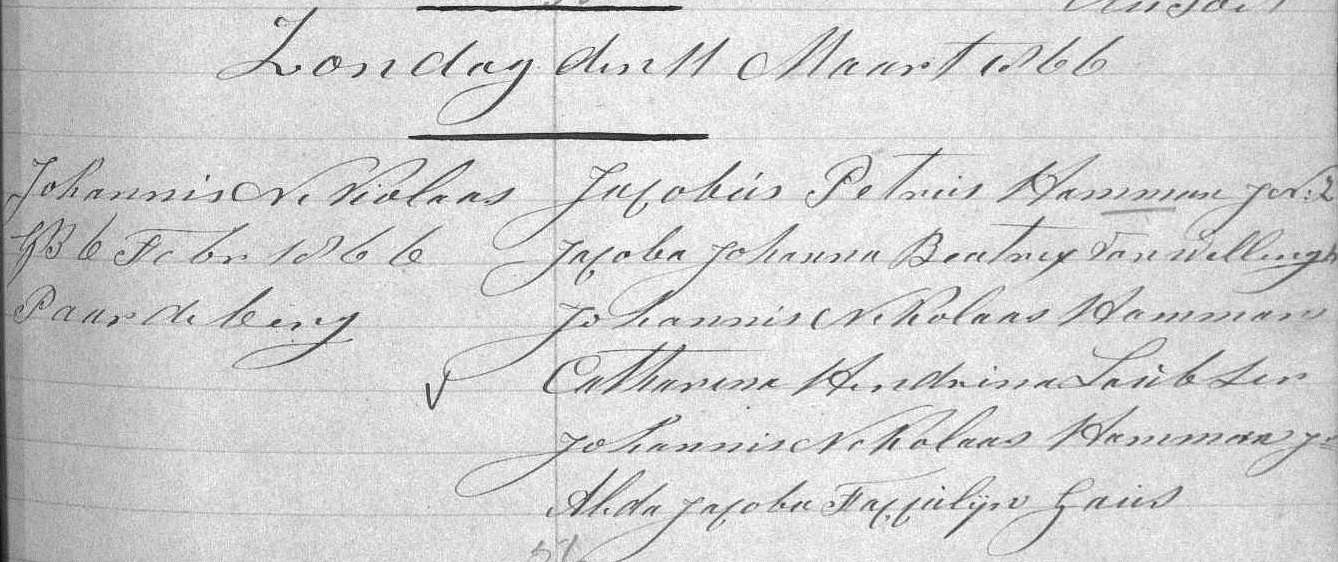 Zondag den 11 Maart 1866
Johannis Nikolaas
GB 6 Febr 1866
Paardeberg
Jacobus Petrus Hamman JN.Z
Jacoba Johanna Beatrix Van Wellingh
Johannis Nikolaas Hamman
Catharina Hendrina Loubser
Johannis Nikolaas Hamman Jr
Alida Jacoba